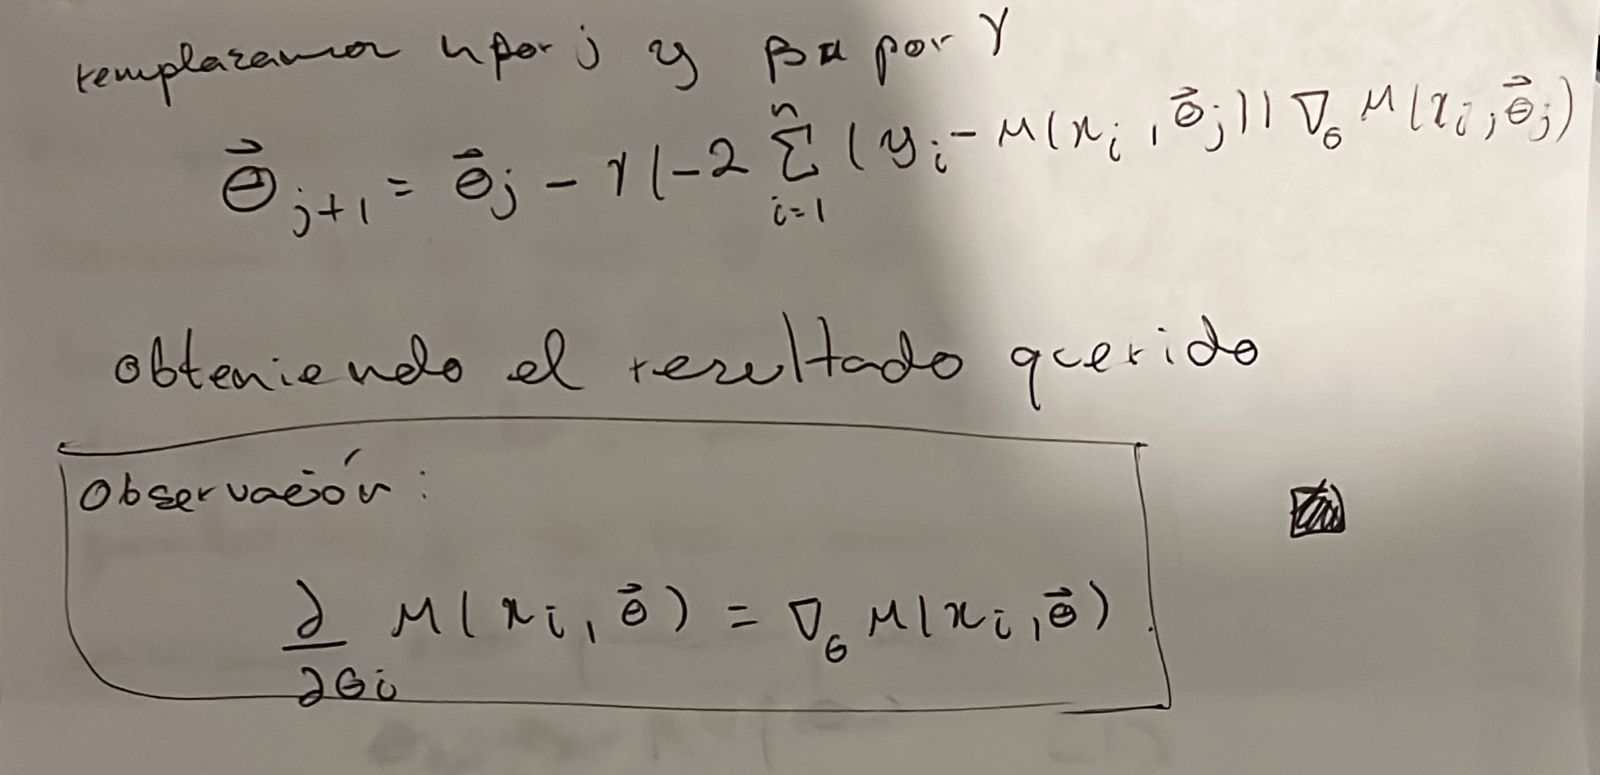 remplazamos n por j y βn por γ
θ⃗_{j+1} = θ⃗_j - γ(-2 ∑_{i=1}^{n} (y_i - μ(x_i, θ⃗_j)) ∇_θ μ(x_i, θ⃗_j)
obteniendo el resultado querido
Observación:
∂/∂θ_i μ(x_i, θ⃗) = ∇_θ μ(x_i, θ⃗).